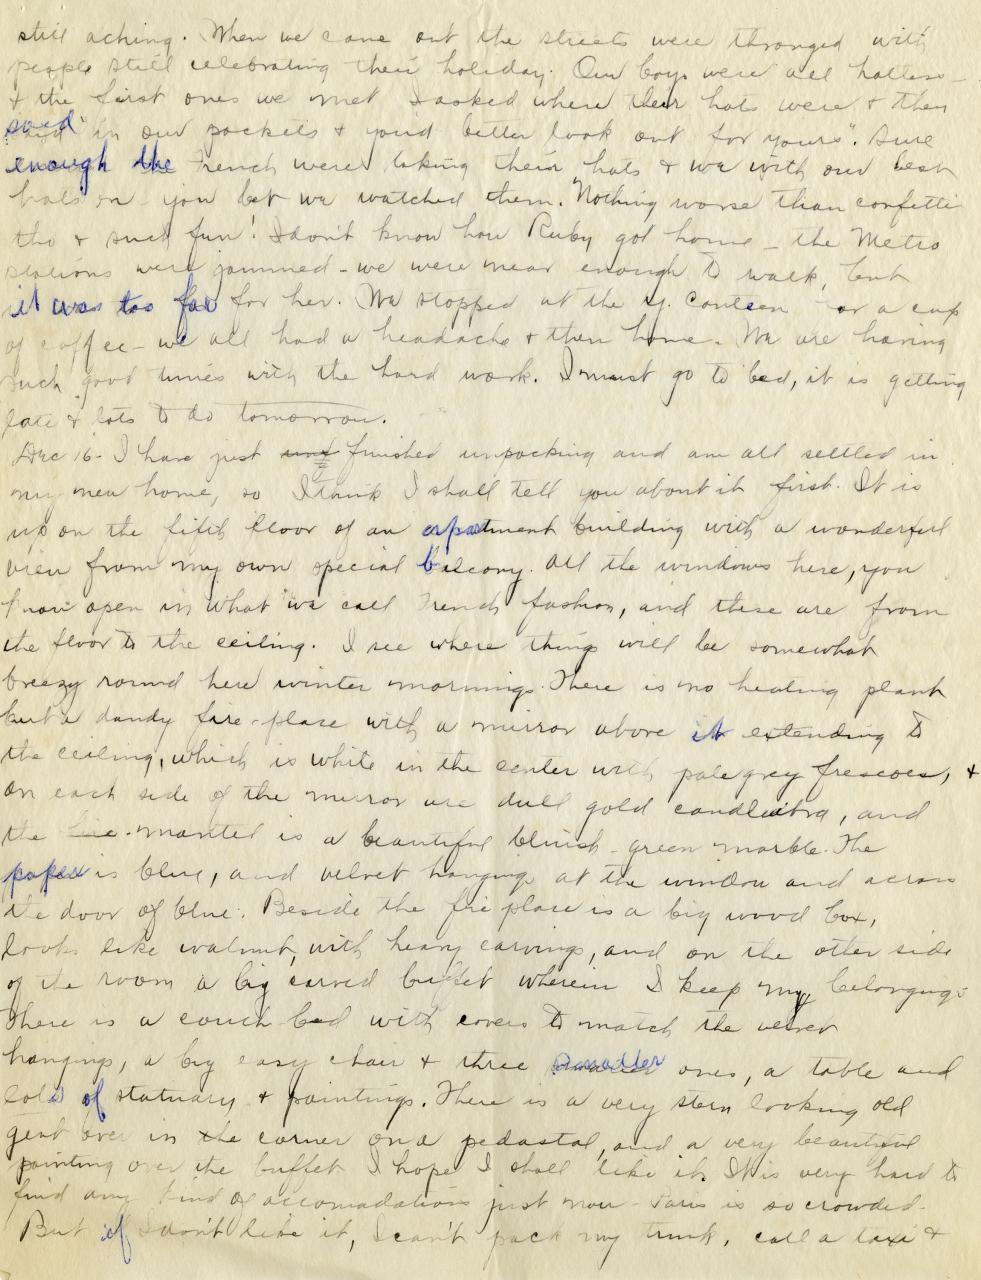 still aching. When we came out the streets were thronged with
people still celebrating their holiday. Our boys were all hatless -
& the first ones we met I asked where their hats were & they
said "in our pockets & you'd better look out for yours". Sure
enough the French were taking their hats & we with our best
hats on - you bet we watched them. Nothing worse than confetti
tho & such fun! I don't know how Ruby got home - the Metro
stations were jammed - we were near enough to walk, but
it was too far for her. We stopped at the Y. Canteen for a cup
of coffee - we all had a headache & then home. We are having
such good times with the hard work. I must go to bed, it is getting
late & lots to do tomorrow.
Dec 16 - I have just finished unpacking and am all settled in
my new home, so I think I shall tell you about it first. It is
up on the fifth floor of an apartment building with a wonderful
view from my own special balcony. All the windows here, you
know open in what we call French fashion, and these are from
the floor to the ceiling. I see where things will be somewhat
breezy round here winter mornings. There is no heating plant
but a dandy fire-place with a mirror above it extending to
the ceiling, which is white in the center with pale grey frescoes, &
on each side of the mirror are dull gold candelabra, and
the mantel is a beautiful bluish-green marble. The
paper is blue, and velvet hangings at the window and across
the door of blue. Beside the fire place is a big wood box,
looks like walnut, with heavy carvings, and on the other side
of the room a big carved buffet wherein I keep my belongings
There is a couch bed with covers to match the velvet
hangings, a big easy chair & three smaller ones, a table and
lots of statuary & paintings. There is a very stern looking old
gent over in the corner on a pedastal, and a very beautiful
painting over the buffet. I hope I shall like it. It is very hard to
find any kind of accomadations just now - Paris is so crowded.
But if I don't like it, I can't pack my trunk, call a taxi &